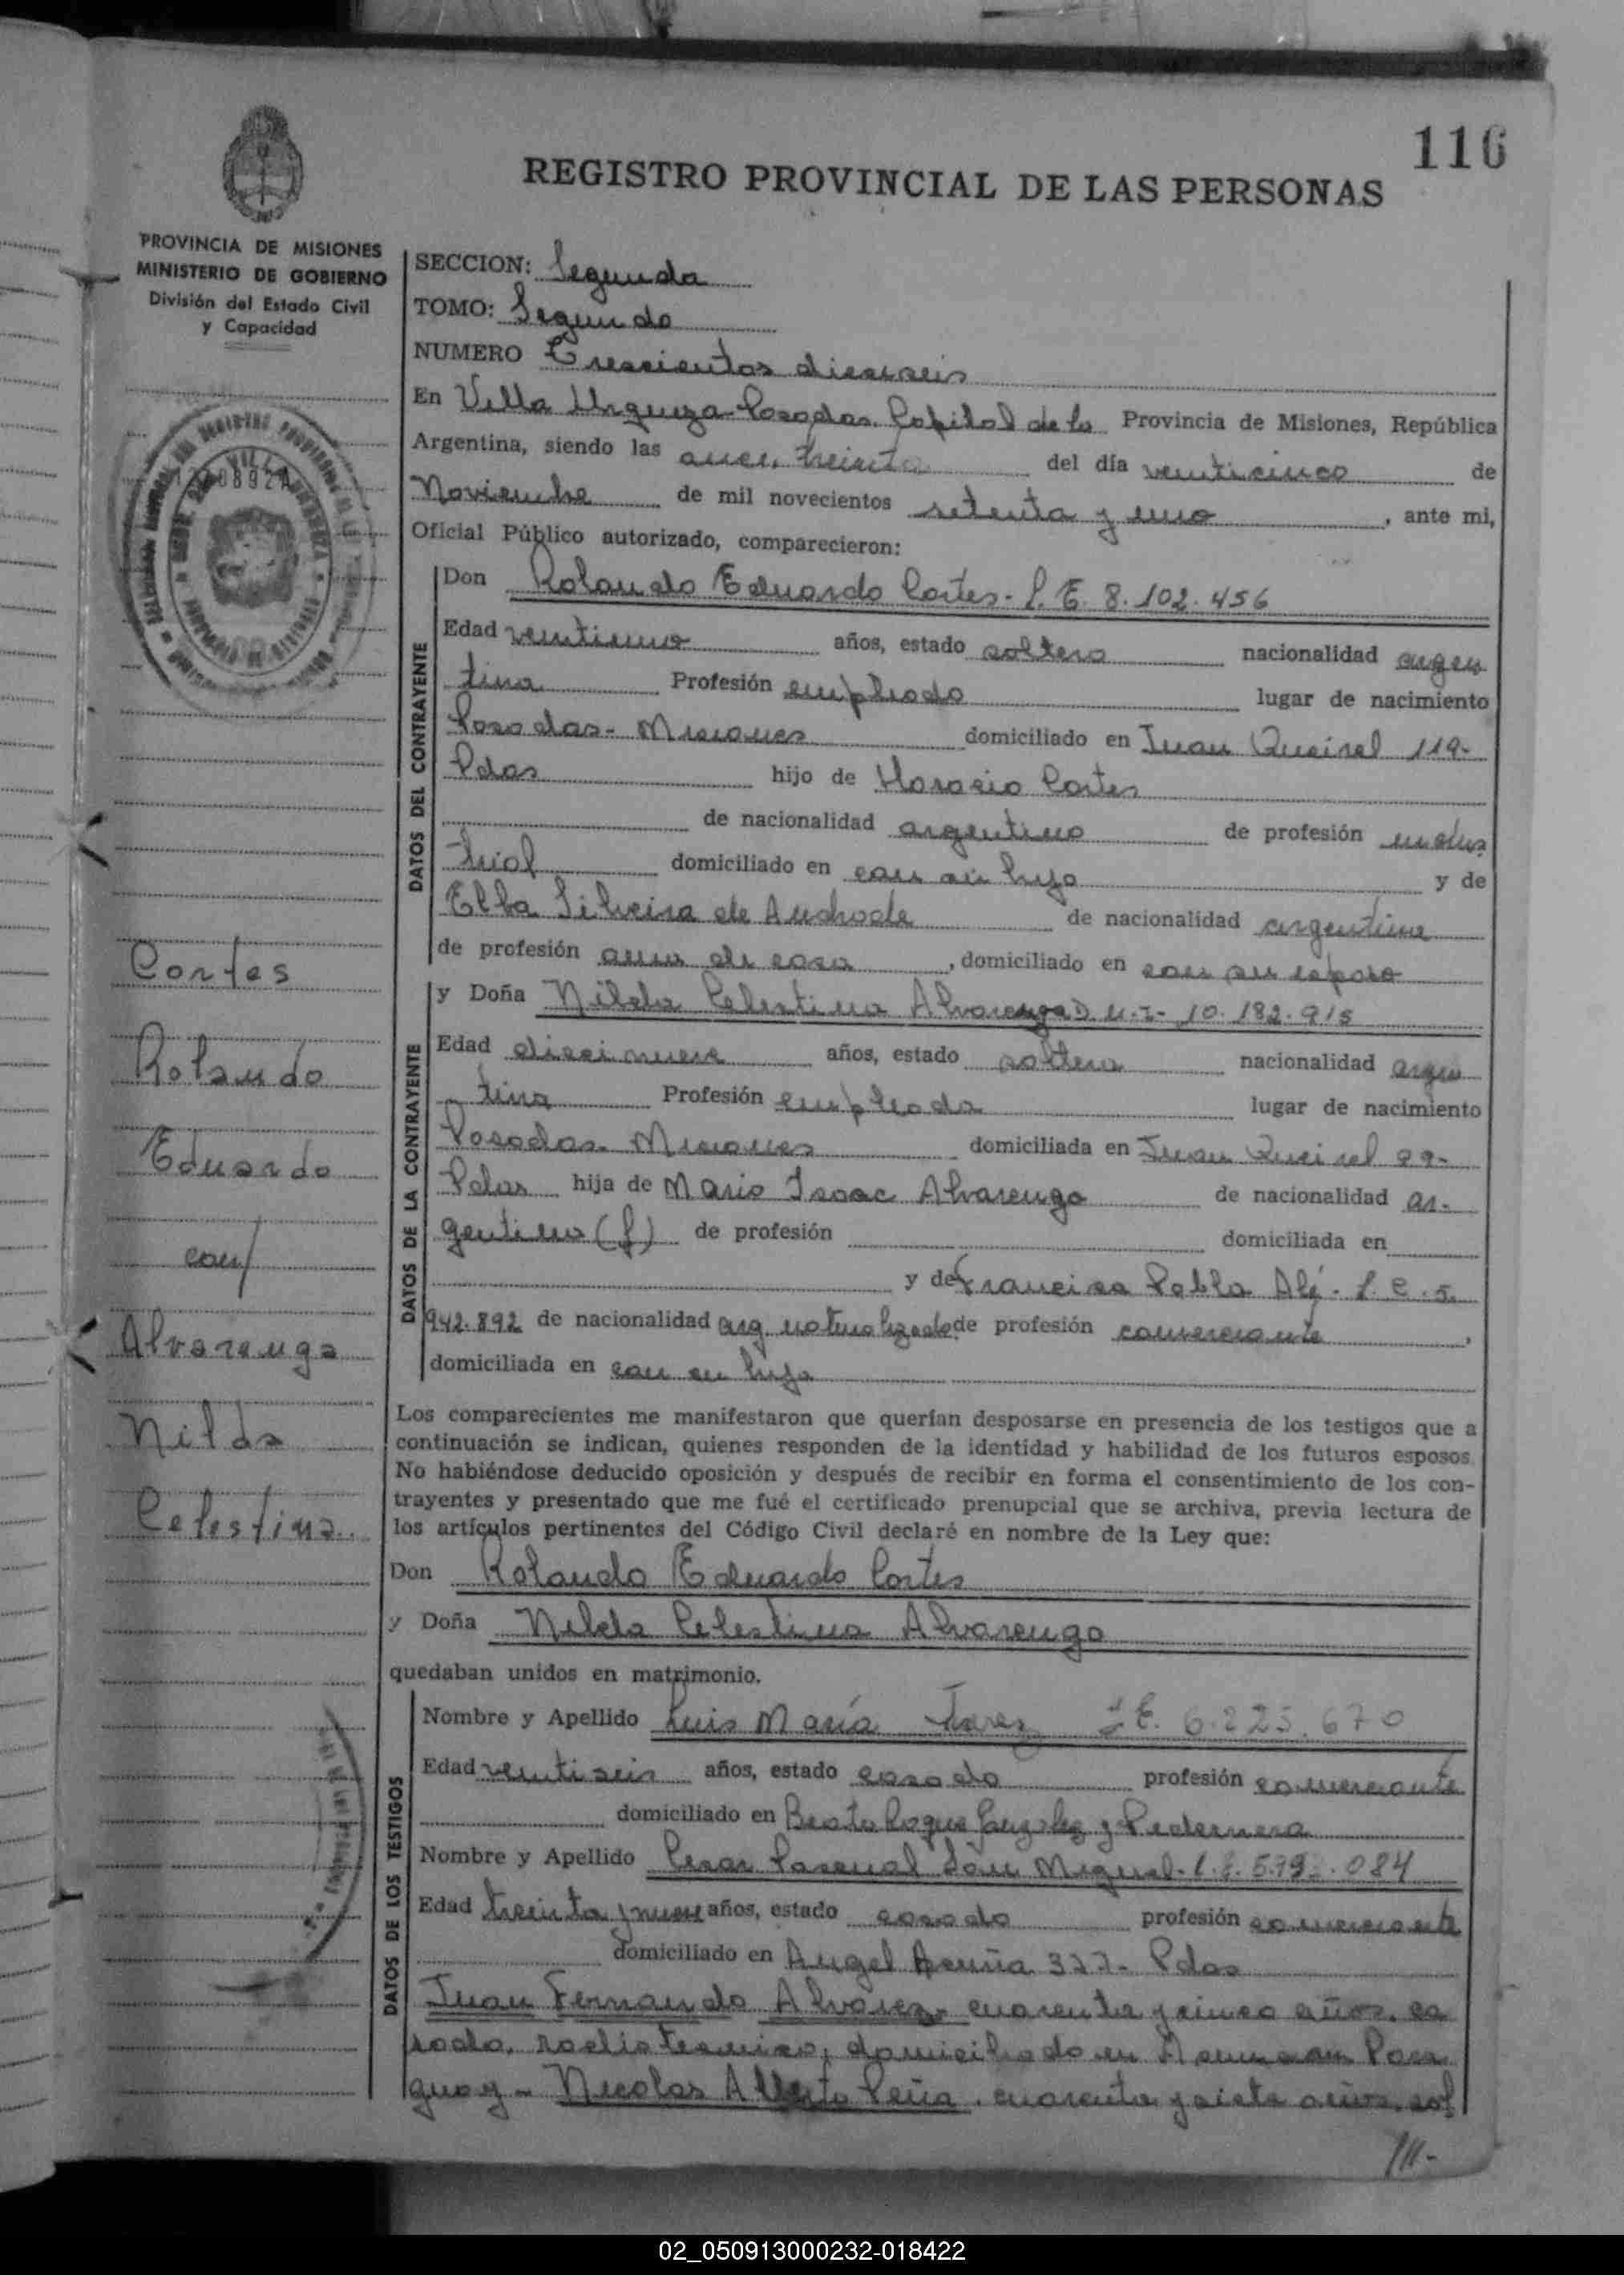 116
REGISTRO PROVINCIAL DE LAS PERSONAS
PROVINCIA DE MISIONES
MINISTERIO DE GOBIERNO
División del Estado Civil
y Capacidad
SECCION: Segunda
TOMO: Segundo
NUMERO Trescientos dieciseis
En Villa Urquiza-Posadas, Capital de la Provincia de Misiones, República
Argentina, siendo las once, treinta del día veinticinco de
Noviembre de mil novecientos setenta y uno, ante mi,
Oficial Público autorizado, comparecieron:
DATOS DEL CONTRAYENTE
Don Rolando Eduardo Cortes- L.E. 8.102.456
Edad veintiuno años, estado soltero nacionalidad argen
tina Profesión empleado lugar de nacimiento
Posadas- Misiones domiciliado en Juan Queirel 119-
Pdas hijo de Horacio Cortes
de nacionalidad argentino de profesión indus
trial domiciliado en con su hijo y de
Elba Silveira de Andrade de nacionalidad argentina
de profesión ama de casa, domiciliado en con su esposo
DATOS DE LA CONTRAYENTE
y Doña Nilda Celestina Alvarenga D.N.I- 10.182.915
Edad diecinueve años, estado soltera nacionalidad argen
tina Profesión empleada lugar de nacimiento
Posadas- Misiones domiciliada en Juan Queirel 99-
Pdas hija de Mario Isaac Alvarengo de nacionalidad ar-
gentino (f) de profesión domiciliada en
y de Francisca Pabla Alé- L.C. 5.
942.892 de nacionalidad arg. naturalizada de profesión comerciante,
domiciliada en con su hija
Los comparecientes me manifestaron que querían desposarse en presencia de los testigos que a
continuación se indican, quienes responden de la identidad y habilidad de los futuros esposos.
No habiéndose deducido oposición y después de recibir en forma el consentimiento de los con-
trayentes y presentado que me fué el certificado prenupcial que se archiva, previa lectura de
los artículos pertinentes del Código Civil declaré en nombre de la Ley que:
Don Rolando Eduardo Cortes
y Doña Nilda Celestina Alvarengo
quedaban unidos en matrimonio.
DATOS DE LOS TESTIGOS
Nombre y Apellido Luis María L.E. 6.225.670
Edad veintiseis años, estado casado profesión comerciante
domiciliado en Beato Roque González y Pedernera
Nombre y Apellido Cesar Pascual San Miguel- L.E. 084
Edad treinta y nueve años, estado casado profesión comerciante
domiciliado en Angel Acuña 377- Pdas
Juan Fernando Alvarez- cuarenta y cinco años, ca
sado, radiotecnico, domiciliado en Asuncion Para
guay- Nicolas Alberto Peña, cuarenta y siete años, sol
///-
Cortes
Rolando
Eduardo
con/
Alvarenga
Nilda
Celestina
02_050913000232-018422